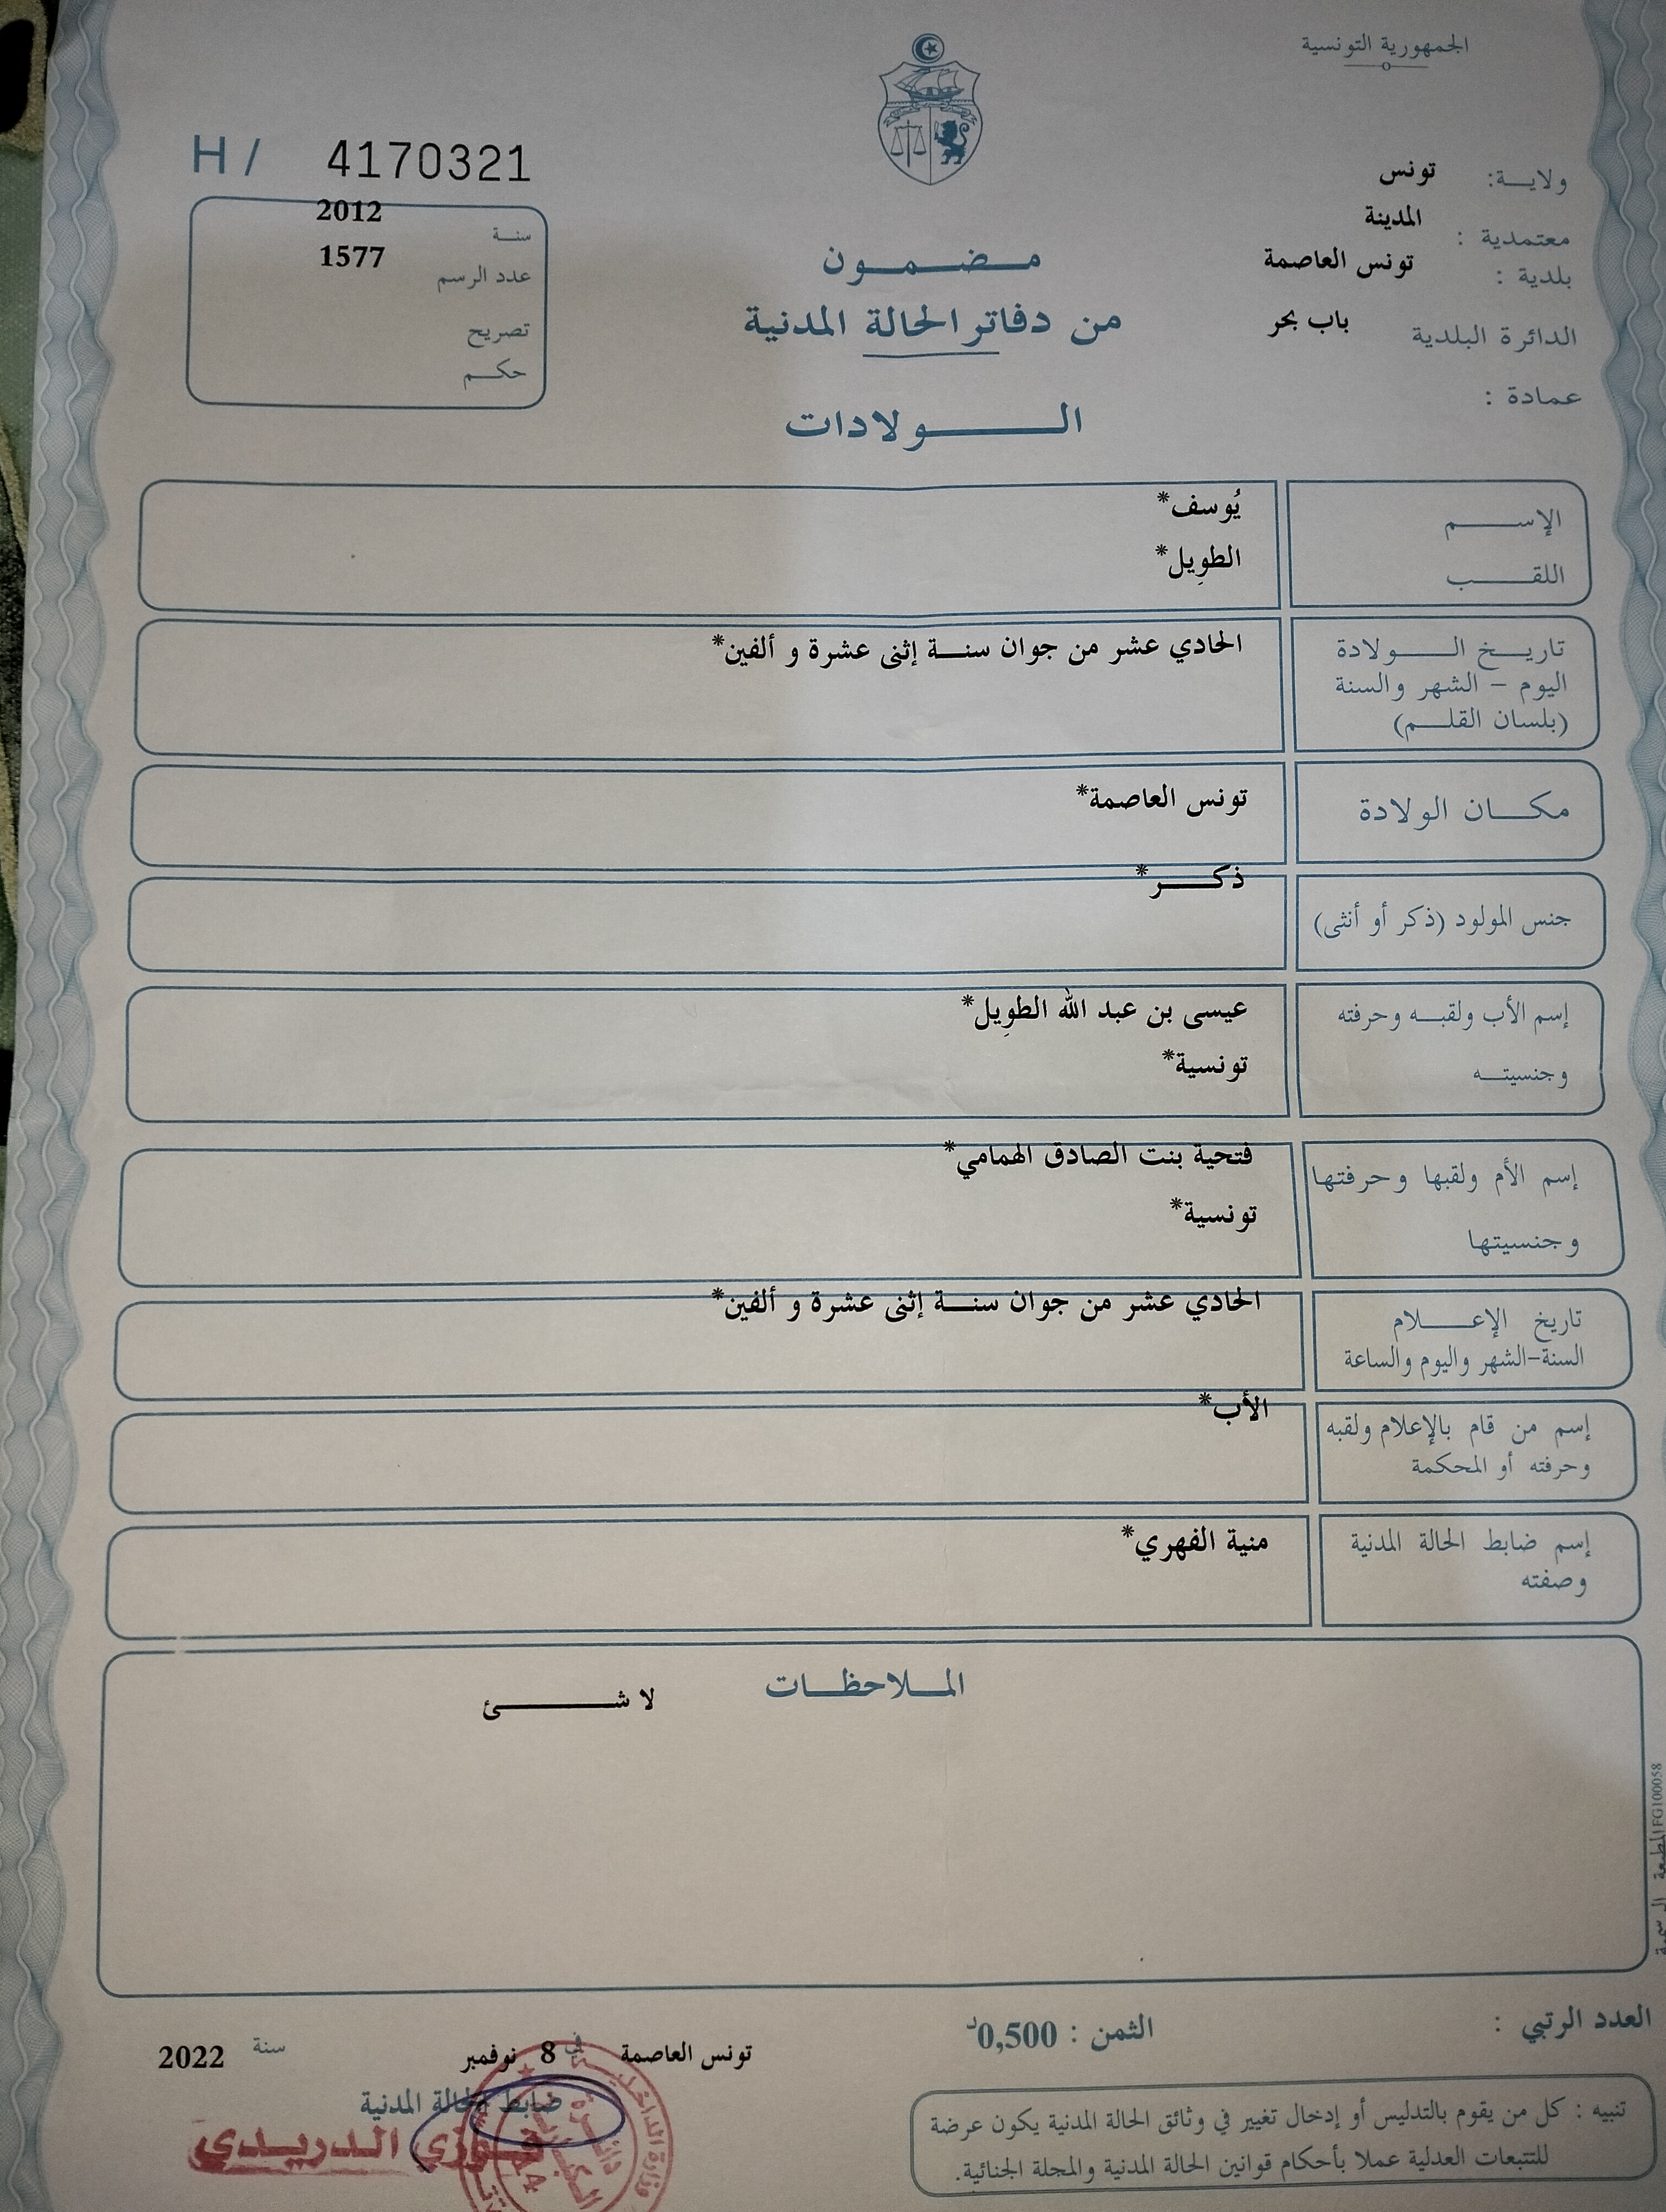 الجمهورية التونسية
ولايـــة: تونس
معتمدية : المدينة
بلدية : تونس العاصمة
الدائرة البلدية باب بحر
عمادة :
H / 4170321
سنـة 2012
عدد الرسم 1577
تصريح
حكـــم
مـضـمـــون
من دفاتر الحالة المدنية
الــــــولادات
الإســــــم يُوسف*
اللقـــــب الطوِيل*
تاريـــخ الـــــولادة الحادي عشر من جوان سنـــة إثنى عشرة و ألفين*
اليوم – الشهر والسنة
(بلسان القلـــم)
مكـــان الولادة تونس العاصمة*
جنس المولود (ذكر أو أنثى) ذكــــر*
إسم الأب ولقبـــه وحرفته عيسى بن عبد الله الطوِيل*
وجنسيتـــه تونسية*
إسم الأم ولقبها وحرفتها فتحية بنت الصادق الهمامي*
وجنسيتها تونسية*
تاريخ الإعـــــلام الحادي عشر من جوان سنـــة إثنى عشرة و ألفين*
السنة–الشهر واليوم والساعة
إسم من قام بالإعلام ولقبه الأب*
وحرفته أو المحكمة
إسم ضابط الحالة المدنية منية الفهري*
وصفته
المـــلاحظـــات
لا شـــــــئ
المطبعة الرسمية FG100058
العدد الرتبي :
الثمن : 0,500د
تونس العاصمة في 8 نوفمبر سنة 2022
ضابط الحالة المدنية
فـوزي الـدريـدي
تنبيه : كل من يقوم بالتدليس أو إدخال تغيير في وثائق الحالة المدنية يكون عرضة
للتتبعات العدلية عملا بأحكام قوانين الحالة المدنية والمجلة الجنائية.